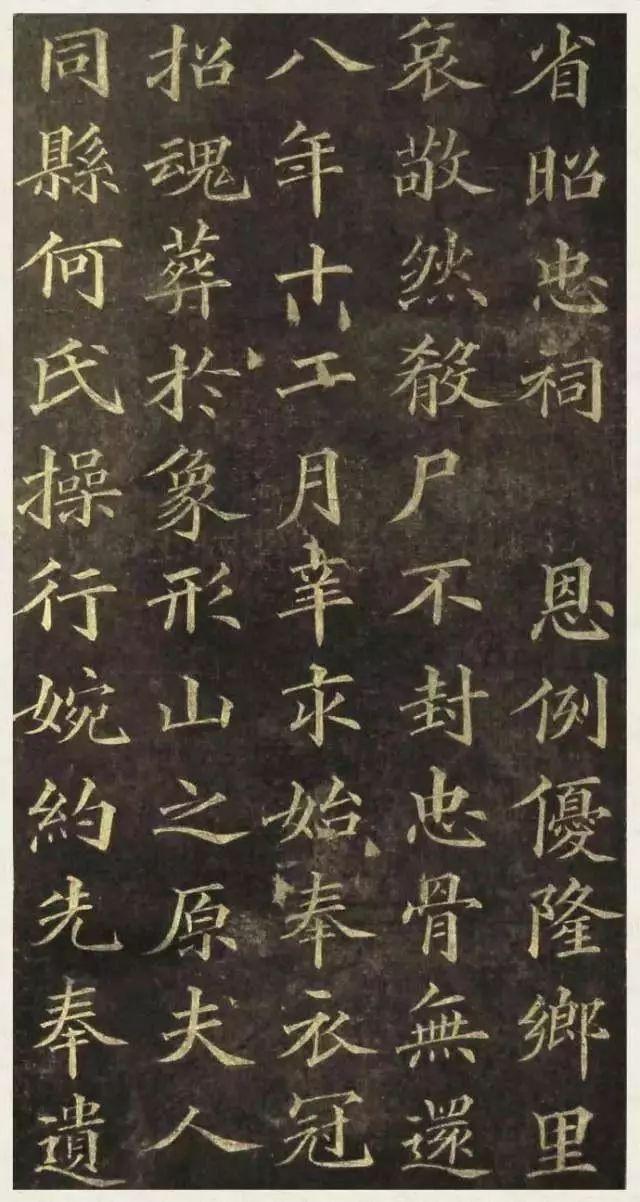 省昭忠祠 恩例優隆鄉里
哀敬然殽尸不封忠骨無還
八年十工月辛未始奉衣冠
招魂葬於象形山之原夫人
同縣何氏操行婉約先奉遺